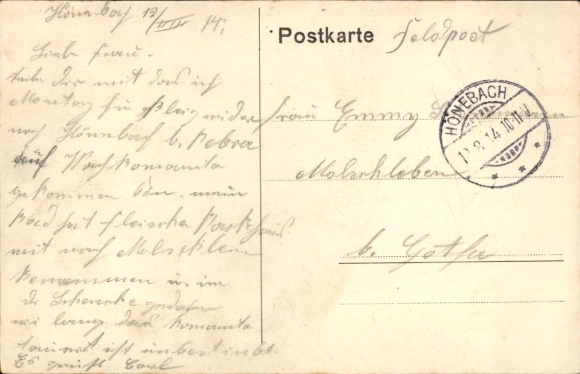 Hönebach 12/VIII 14.
Liebe Frau.
Teile Dir mit das ich
Montag für
nach Hönnebach b. Bebra
auf Wach Komanto
gekommen bin. mein
Rad hat Fleischer
mit nach Molschleben
genommen u. im
wie lang das Komanto
dauert ist unbestimt
Es grüßt Carl
Postkarte Feldpost
Frau Emmy
Molschleben
b. Gotha
HÖNEBACH
12.8.14. 10-11 V.